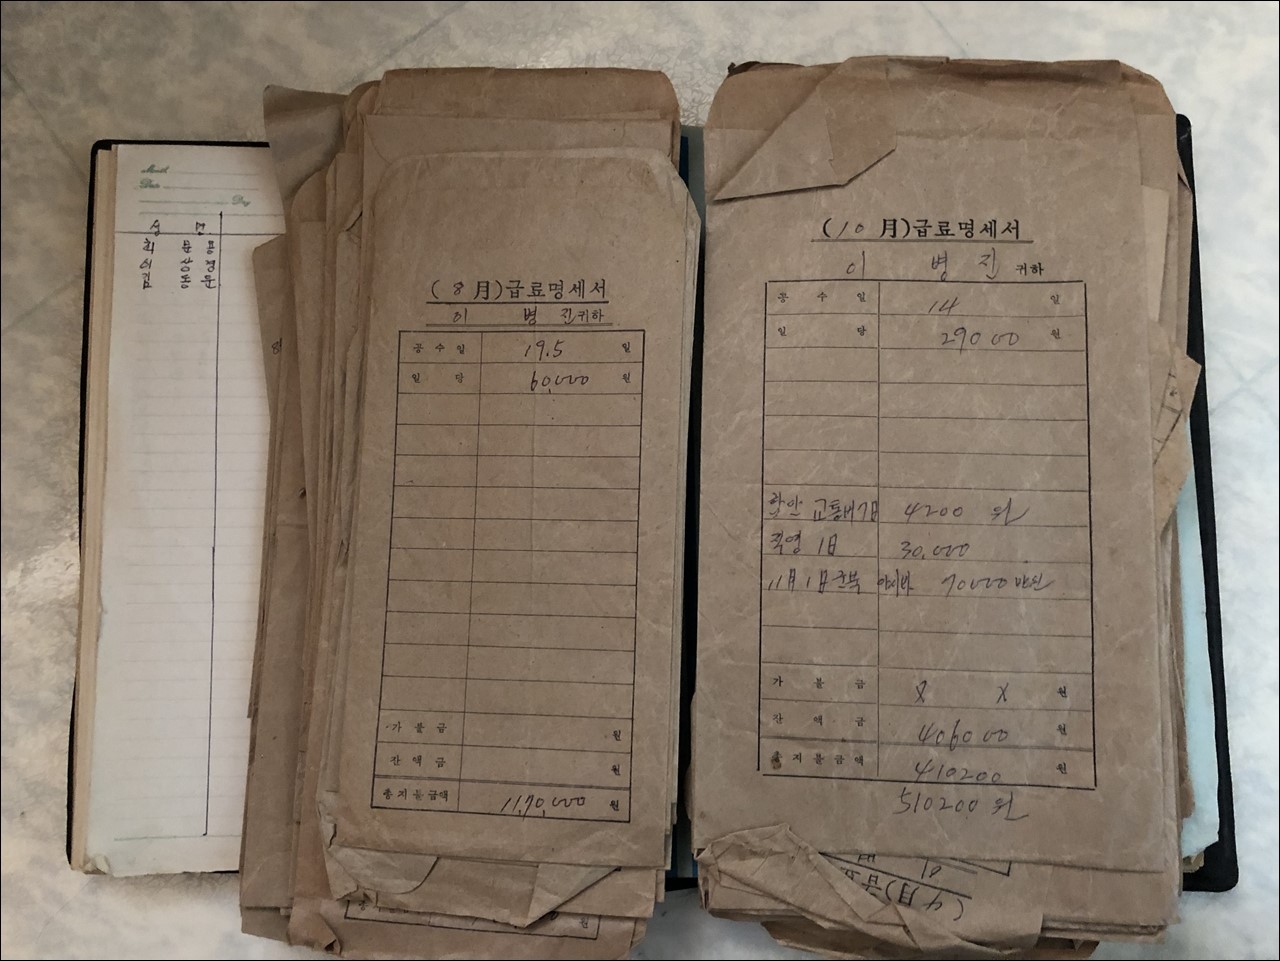 Month
Date
Day
성 명
최 문 용
이 상 경
김 동 운
(8 月)급료명세서
이 병 진 귀하
공 수 일 19.5 일
일 당 60,000 원
가 불 금 원
잔 액 금 원
총지불금액 1170,000 원
(10 月)급료명세서
이 병 진 귀하
공 수 일 14 일
일 당 29000 원
함안 교통비 7日 4200 원
직영 1日 30,000
11月 1日 군북 야시바 70000
가 불 금 X X 원
잔 액 금 406000 원
총지불금액 410200 원
510200 원